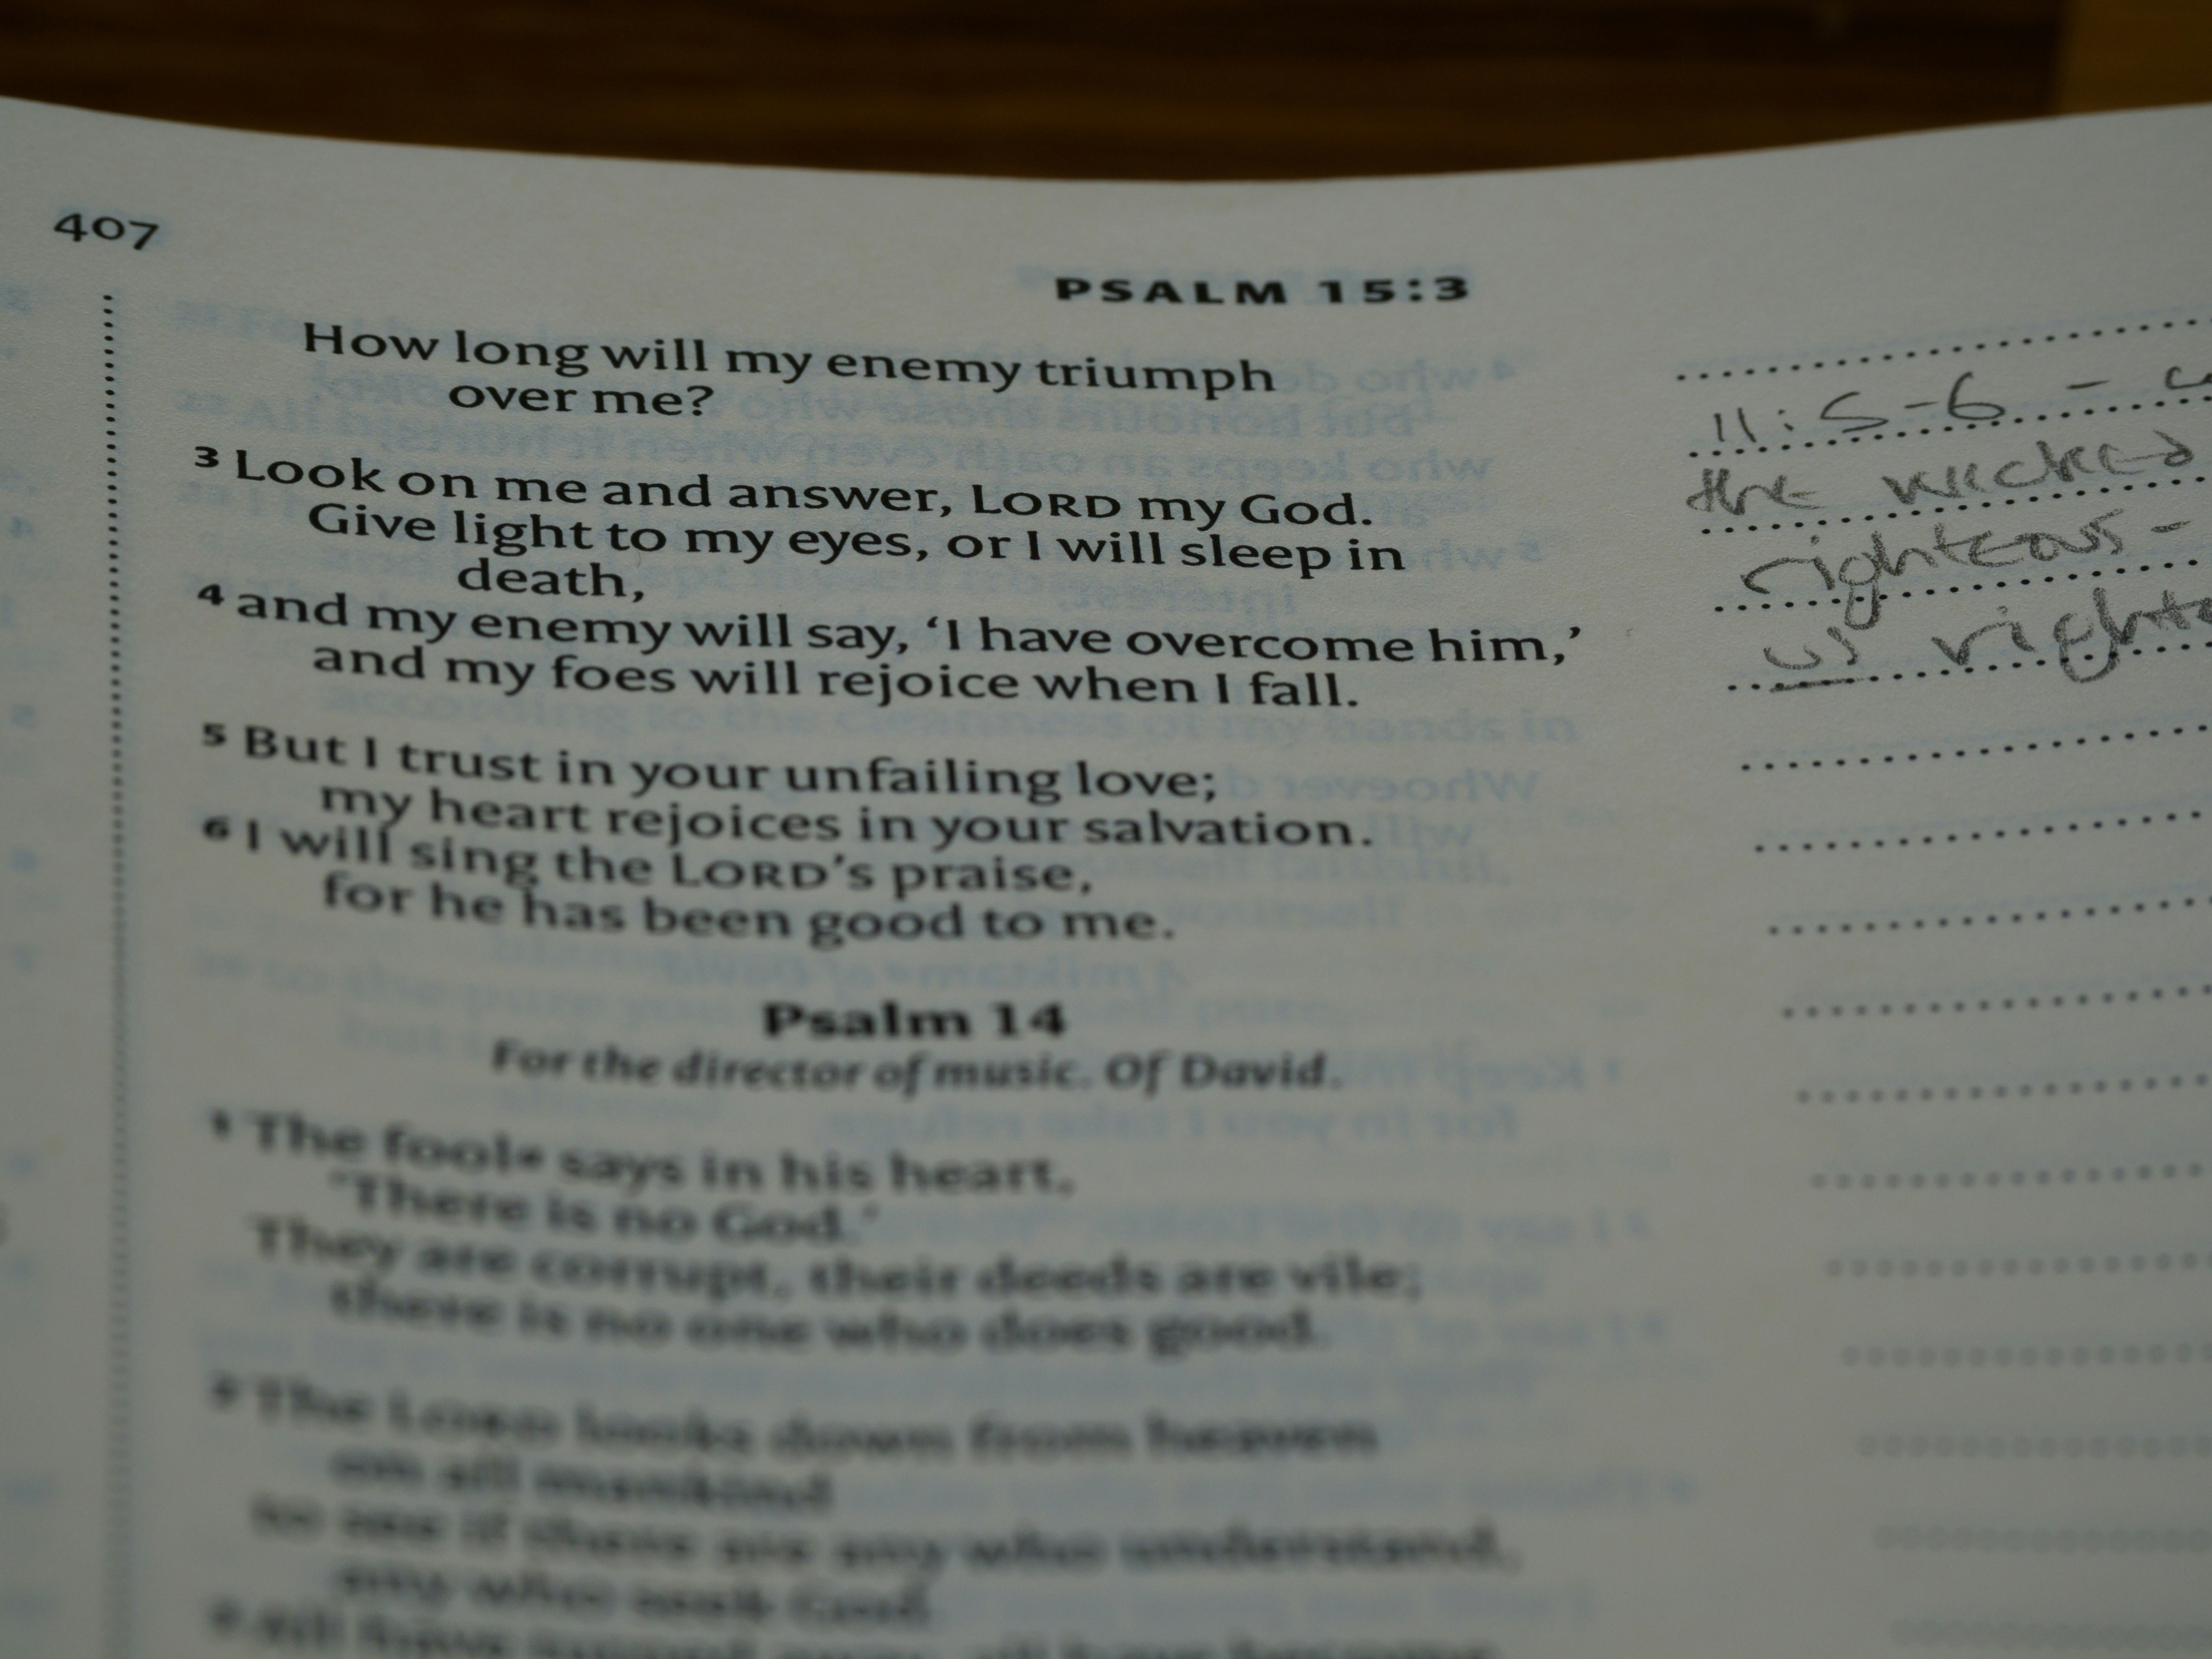 407
PSALM 15:3
How long will my enemy triumph
over me?
3 Look on me and answer, LORD my God.
Give light to my eyes, or I will sleep in
death,
4 and my enemy will say, ‘I have overcome him,’
and my foes will rejoice when I fall.
5 But I trust in your unfailing love;
my heart rejoices in your salvation.
6 I will sing the LORD’s praise,
for he has been good to me.
Psalm 14
For the director of music. Of David.
1 The fool says in his heart,
‘There is no God.’
They are corrupt, their deeds are vile;
there is no one who does good.
2 The LORD looks down from heaven
on all mankind
to see if there are any who understand,
any who seek God.
3 All have turned away, all have become
11:5-6 -
the wicked
righteous -